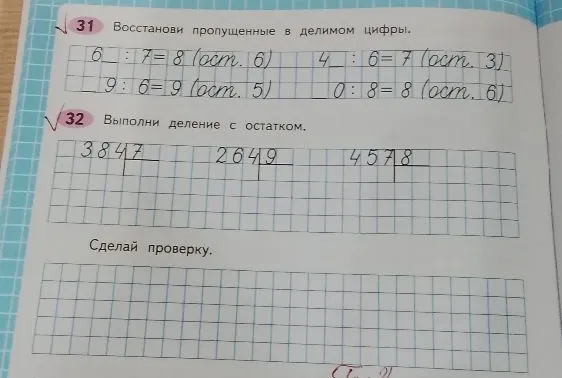 31 Восстанови пропущенные в делимом цифры.
6_ : 7 = 8 (ост. 6) 4_ : 6 = 7 (ост. 3)
_9 : 6 = 9 (ост. 5) _0 : 8 = 8 (ост. 6)
32 Выполни деление с остатком.
384 7 264 9 457 8
Сделай проверку.